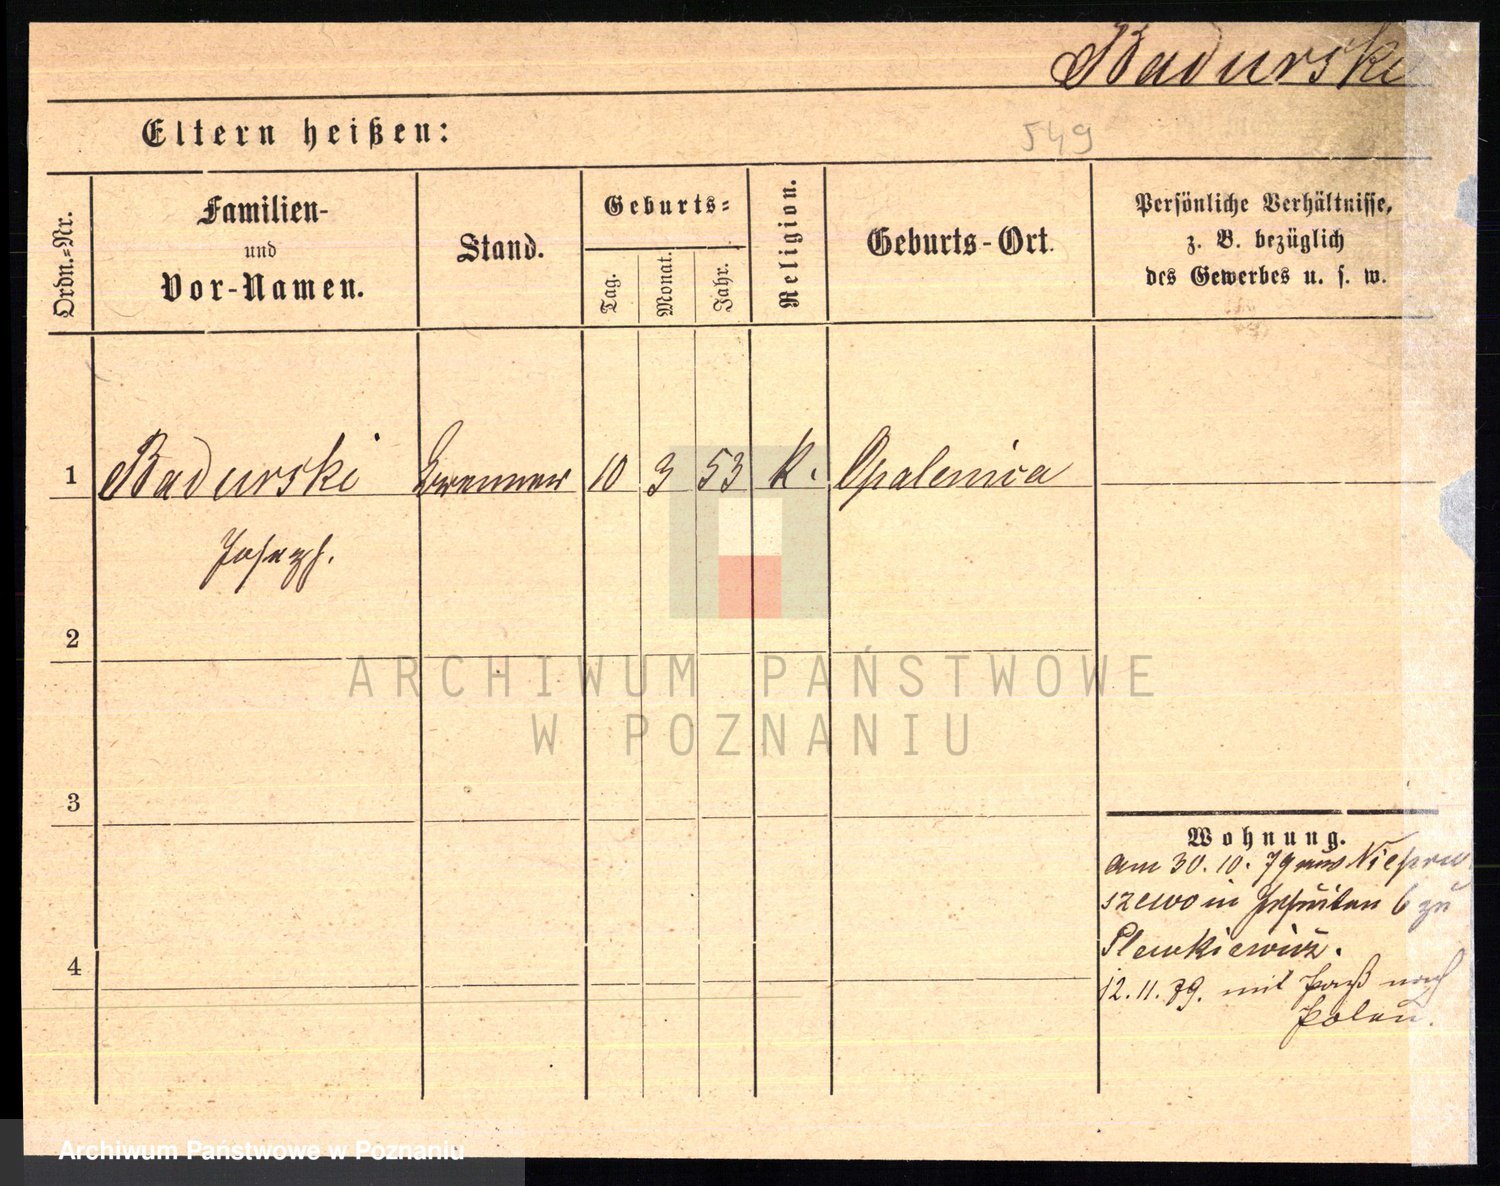 Badurski
Eltern heißen:
549
Ordn.=Nr.
Familien-
und
Vor-Namen.
Stand.
Geburts=
Tag.
Monat.
Jahr.
Religion.
Geburts-Ort.
Persönliche Verhältnisse,
z. B. bezüglich
des Gewerbes u. s. w.
1 Badurski Brenner 10 3 53 K. Opalenica
Joseph.
2
ARCHIWUM PAŃSTWOWE
W POZNANIU
3
Wohnung.
am 30. 10. 79 aus Niepru
szewo in Jesuiten 6 zu
Plewkiewicz.
4
12. 11. 79. mit Paß nach
Polen.
Archiwum Państwowe w Poznaniu